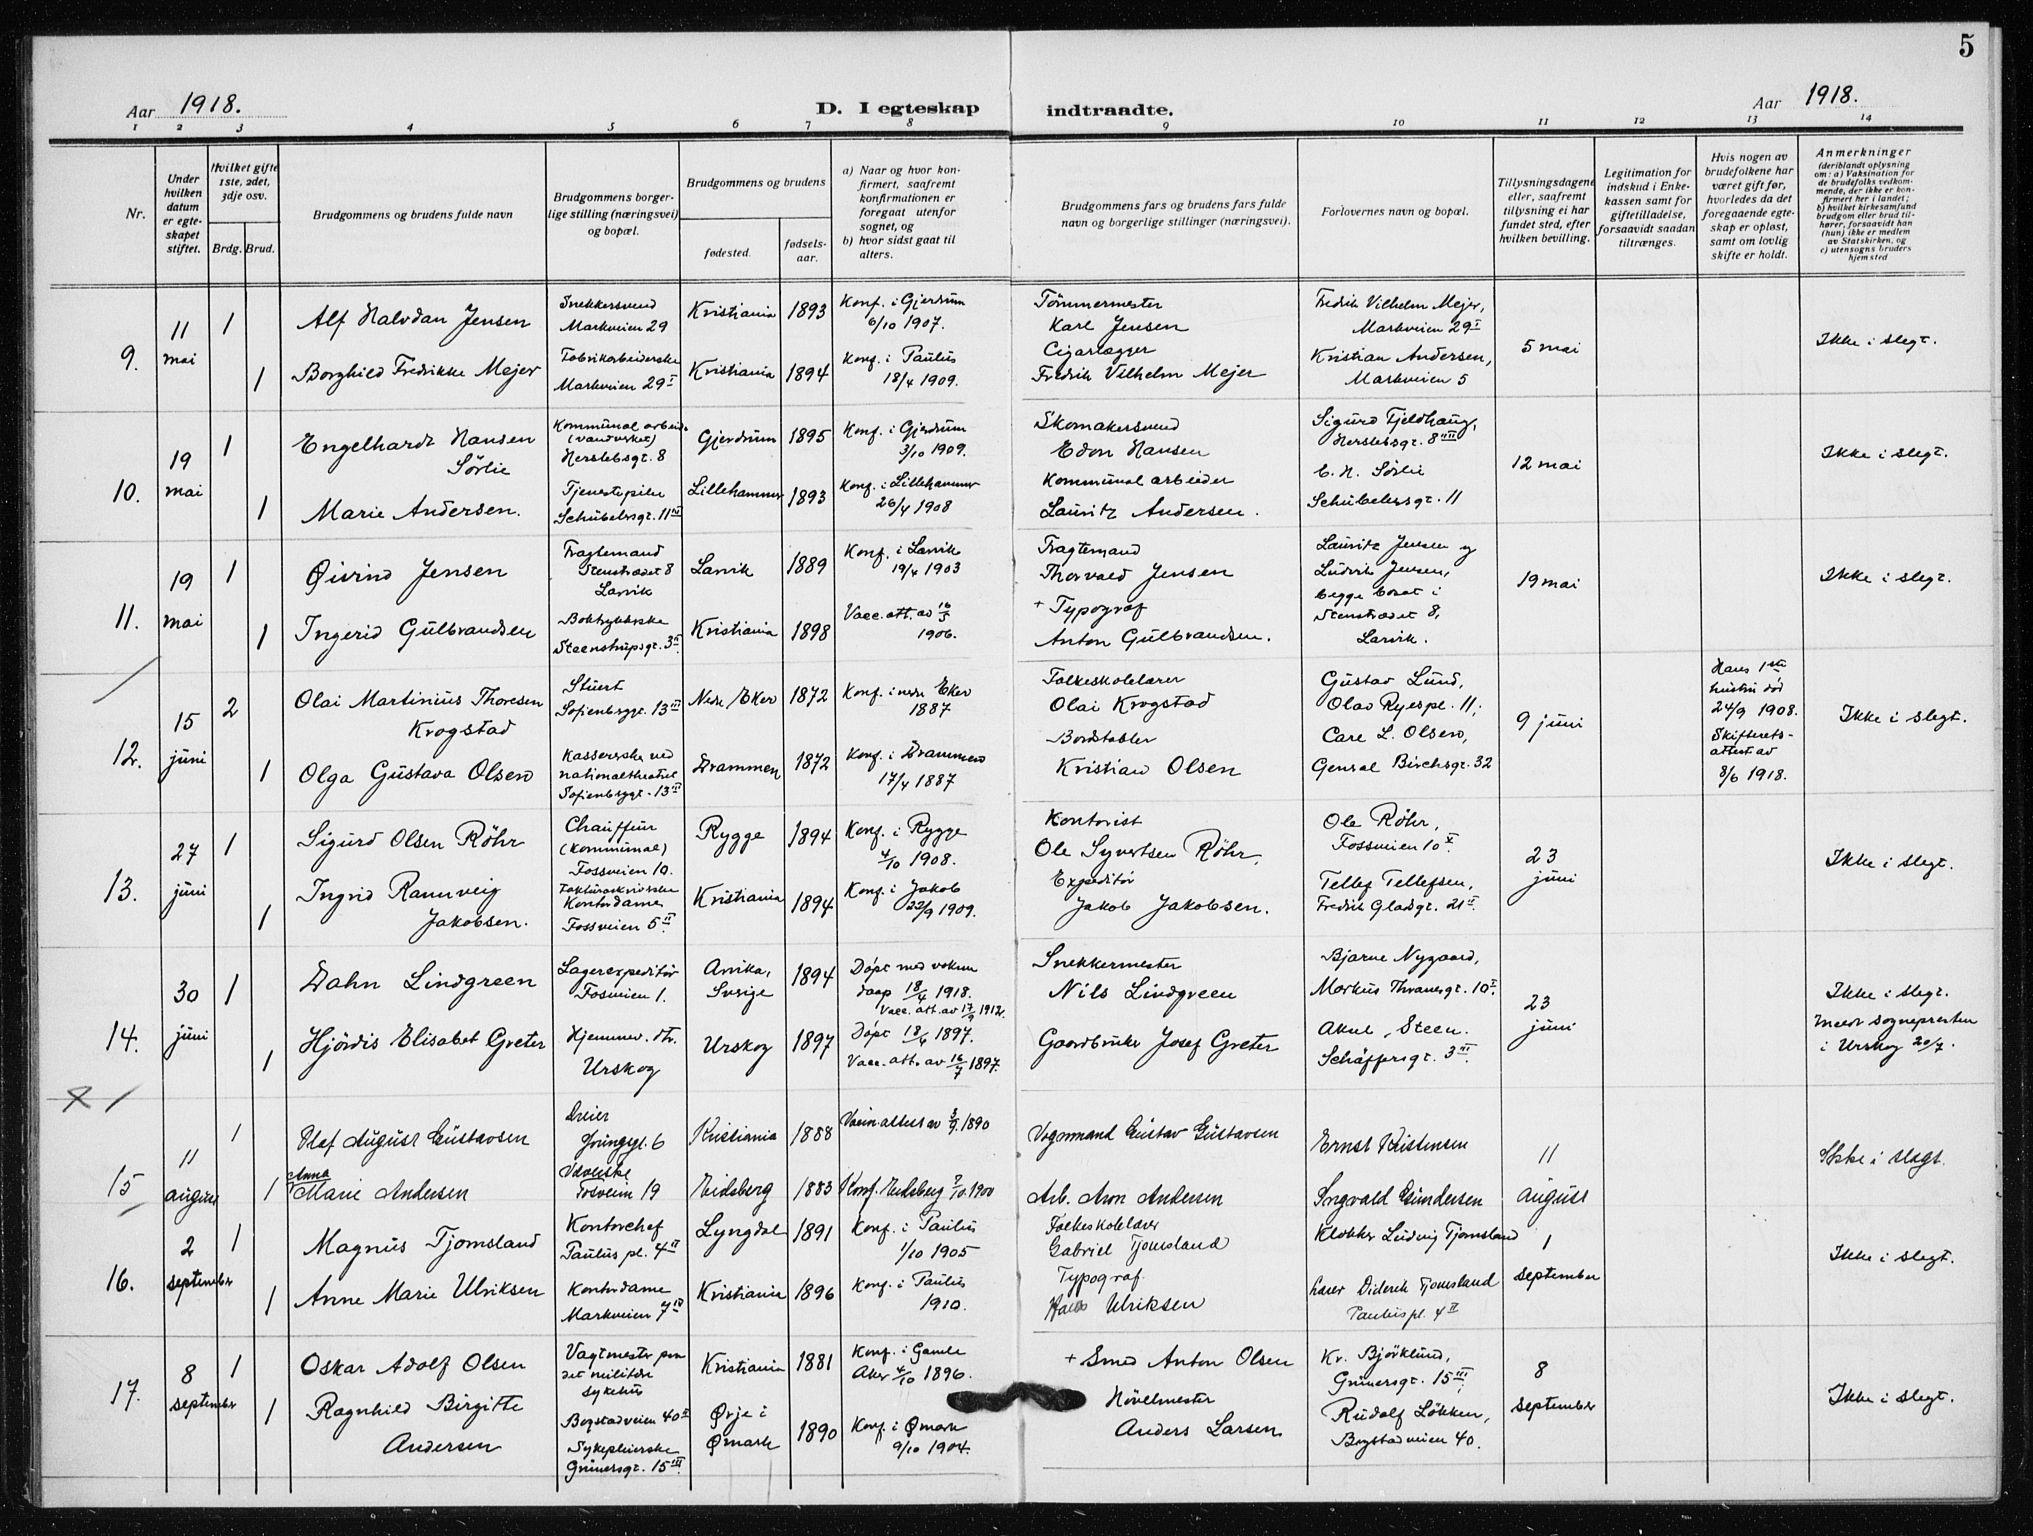 5
Aar 1918.
D. I egteskap indtraadte.
Aar 1918.
1 2 3 4 5 6 7 8 9 10 11 12 13 14
Nr.
Under hvilken datum er egteskapet stiftet.
Hvilket gifte 1ste, 2det, 3dje osv.
Brdg. Brud.
Brudgommens og brudens fulde navn
Brudgommens borgerlige stilling (næringsvei) og bopæl.
Brudgommens og brudens
fødested.
fødselsaar.
a) Naar og hvor konfirmert, saafremt konfirmationen er foregaat utenfor sognet, og
b) hvor sidst gaat til alters.
Brudgommens fars og brudens fars fulde navn og borgerlige stillinger (næringsvei).
Forlovernes navn og bopæl.
Tillysningsdagene eller, saafremt tillysning ei har fundet sted, efter hvilken bevilling.
Legitimation for indskud i Enkekassen samt for giftetilladelse, forsaavidt saadan tiltrænges.
Hvis nogen av brudefolkene har været gift før, hvorledes da det foregaaende egteskap er opløst, samt om lovlig skifte er holdt.
Anmerkninger
(deriblandt oplysning om: a) Vaksination for de brudefolks vedkommende, der ikke er konfirmert her i landet; b) hvilket kirkesamfund brudgom eller brud tilhører, forsaavidt han (hun) ikke er medlem av Statskirken, og c) utensogns bruders hjemsted
9. 11 mai
1 Alf Halvdan Jensen
Snekkersvend
Markveien 29
Kristiania 1893
Konf. i Gjerdrum
6/10 1907.
Tømmermester
Karl Jensen
Fredrik Vilhelm Mejer,
Markveien 29 I
5 mai
Ikke i slegt.
1 Borghild Fredrikke Mejer
Fabrikarbeiderske
Markveien 29 I
Kristiania 1894
Konf. i Paulus
18/4 1909.
Cigarlægger
Fredrik Vilhelm Mejer
Kristian Andersen,
Markveien 5
10. 19 mai
1 Engelhardt Hansen
Sörlie
Kommunal arbeid.
(vandverket)
Herslebsgt. 8
Gjerdrum 1895
Konf. i Gjerdrum
3/10 1909.
Skomakersvend
Edon Hansen
Sigurd Fjeldhaug,
Herslebsgt. 8 III
12 mai
Ikke i slegt.
1 Marie Andersen.
Tjenestepike
Schübelersgt. 11 IV
Lillehammer 1893
Konf. i Lillehammer
26/4 1908
Kommunal arbeider
Lauritz Andersen.
C. H. Sörlie
Schübelersgt. 11
11. 19 mai
1 Øivind Jensen
Fragtemand
Stenstrædet 8
Larvik
Larvik 1889
Konf. i Larvik
19/4 1903
Fragtemand
Thorvald Jensen
Lauritz Jensen og
Ludvik Jensen,
begge bosat i
Stenstrædet 8,
Larvik.
19 mai
Ikke i slegt.
1 Ingerid Gulbrandsen
Boktrykkerske
Steenstrupsgt. 3 II
Kristiania 1898
Vacc. att. av 16/5
1906.
+ Typograf
Anton Gulbrandsen.
12. 15 juni
2 Olai Martinius Thoresen
Krogstad
Stuert
Sofienbrggt. 13 III
Nedre Eker 1872
Konf. i nedre Eker
1887
Folkeskolelærer
Olai Krogstad
Gustav Lund,
Olav Ryespl. 11;
9 juni
Hans 1ste
hustru död
24/9 1908.
Skifterets-
attest av
8/6 1918.
Ikke i slegt.
1 Olga Gustava Olsen
Kassererske ved
nationaltheatret
Sofienbrggt. 13 III
Drammen 1872
Konf. i Drammen
17/4 1887
Bordstabler
Kristian Olsen
Care L. Olsen,
General Birchsgt. 32
13. 27 juni
1 Sigurd Olsen Röhr
Chauffeur
(kommunal)
Fossveien 10.
Rygge 1894
Konf. i Rygge
4/10 1908.
Kontorist
Ole Syvertsen Röhr,
Ole Röhr,
Fossveien 10 V.
23 juni
Ikke i slegt.
1 Ingrid Rannveig
Jakobsen.
Kontordame
Fossveien 5 II.
Kristiania 1894
Konf. i Jakob
22/9 1909.
Expeditör
Jakob Jakobsen.
Tellef Tellefsen,
Fredrik Gladsgt. 21 II.
14. 30 juni
1 Dahn Lindgreen
Lagerexpeditör
Fosveien 1.
Arvika,
Sverige
1894
Döpt med voksen
daap 18/4 1918.
Vacc. att. av 17/9 1912.
Snekkermester
Nils Lindgreen
Bjarne Nygaard,
Markus Thranesgt. 10 I.
23 juni
Ikke i slegt.
Meldt sognepresten
i Urskog 20/7.
1 Hjördis Elisabet Greter
Hjemmev. dtr.
Urskog
Urskog 1897
Döpt 18/4 1897.
Vacc. att. av 16/7 1897.
Gaardbruker Josef Greter
Aksel Steen.
Schäffersgt. 3 III.
15 11 august
1 Olaf August Gustavsen
Dreier
Kristiania 1888
Vaccin. attest av 3/9. 1890
Vognmand Gustav Gustavsen
Ernst Kristensen
11 august
Ikke i slegt.
1 Anna Marie Andersen
Fosveien 19
Eidsberg 1883
Konf. Eidsberg 7/10. 1900
Arb. Aron Andersen
Ingvald Gundersen
16. 2 september
1 Magnus Tjomsland
Kontorchef
Paulus pl. 4 II
Lyngdal 1891
Konf. i Paulus
1/10 1905
Folkeskolelærer
Gabriel Tjomsland
Klokker Ludvig Tjomsland
1 september
Ikke i slegt.
1 Anne Marie Ulriksen
Kontordame
Markveien 7 IV
Kristiania 1896
Konf. i Paulus
1910.
Typograf
Hans Ulriksen
Lærer Diderik Tjomsland
Paulus pl. 4 II
17. 8 september
1 Oskar Adolf Olsen
Vagtmester paa
det militære
sykehus
Bogstadveien 40 II
Kristiania 1881
Konf. i Gamle
Aker 4/10 1896.
+ Smed Anton Olsen
Kr. Björklund,
Grünersgt. 15 III;
8 september
Ikke i slegt.
1 Ragnhild Birgitte
Andersen
Sykepleierske
Grünersgt. 15 III.
Ørje i
Ømark
1890
Konf. i Ømark
9/10 1904.
Hövelmester
Anders Larsen
Rudolf Lökken,
Bogstadveien 40.